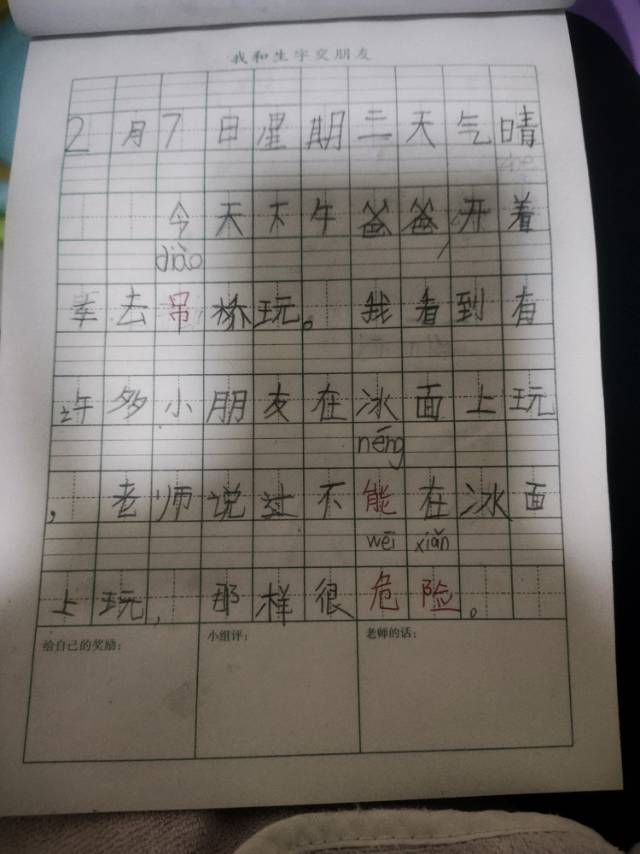 我和生字交朋友
2月7日星期三天气晴
今天下午爸爸,开着
diào
车去吊桥玩。我看到有
许多小朋友在冰面上玩
néng
,老师说过不能在冰面
wēi xiǎn
上玩,那样很危险。
给自己的奖励: 小组评: 老师的话: